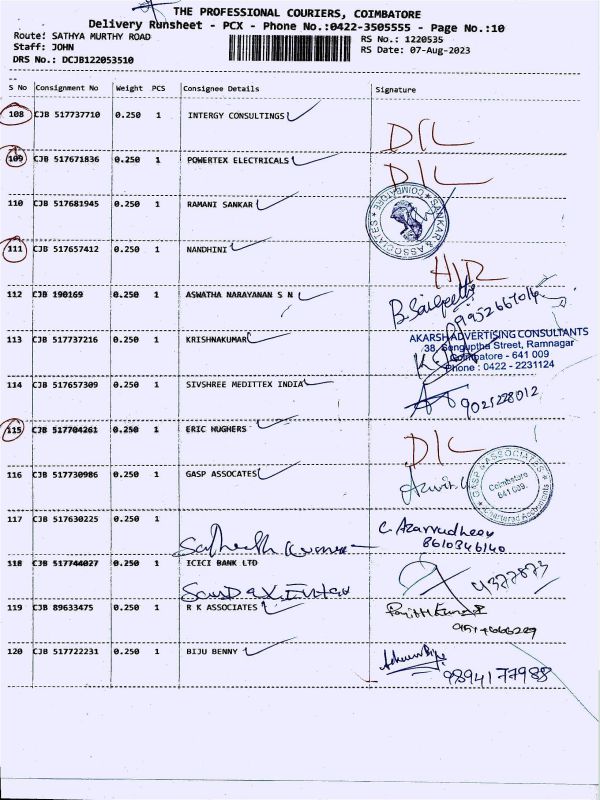 THE PROFESSIONAL COURIERS, COIMBATORE
Delivery Runsheet - PCX - Phone No.:0422-3505555 - Page No.:10
Route: SATHYA MURTHY ROAD
RS No.: 1220535
Staff: JOHN
RS Date: 07-Aug-2023
DRS No.: DCJB122053510
S No Consignment No Weight PCS Consignee Details Signature
108 CJB 517737710 0.250 1 INTERGY CONSULTINGS
D/L
109 CJB 517671836 0.250 1 POWERTEX ELECTRICALS
D/L
110 CJB 517681945 0.250 1 RAMANI SANKAR
SANKAR & ASSOCIATES
COIMBATORE
111 CJB 517657412 0.250 1 NANDHINI
112 CJB 190169 0.250 1 ASWATHA NARAYANAN S N
113 CJB 517737216 0.250 1 KRISHNAKUMAR
AKARSH ADVERTISING CONSULTANTS
38, Senguptha Street, Ramnagar
Coimbatore - 641 009
Phone : 0422 - 2231124
114 CJB 517657309 0.250 1 SIVSHREE MEDITTEX INDIA
9025228012
115 CJB 517704261 0.250 1 ERIC HUGHERS
D/L
116 CJB 517730986 0.250 1 GASP ASSOCATES
GASP & ASSOCIATES
Coimbatore
641 009.
Chartered Accountants
117 CJB 517630225 0.250 1
8610346140
118 CJB 517744027 0.250 1 ICICI BANK LTD
119 CJB 89633475 0.250 1 R K ASSOCIATES
120 CJB 517722231 0.250 1 BIJU BENNY
9894177988